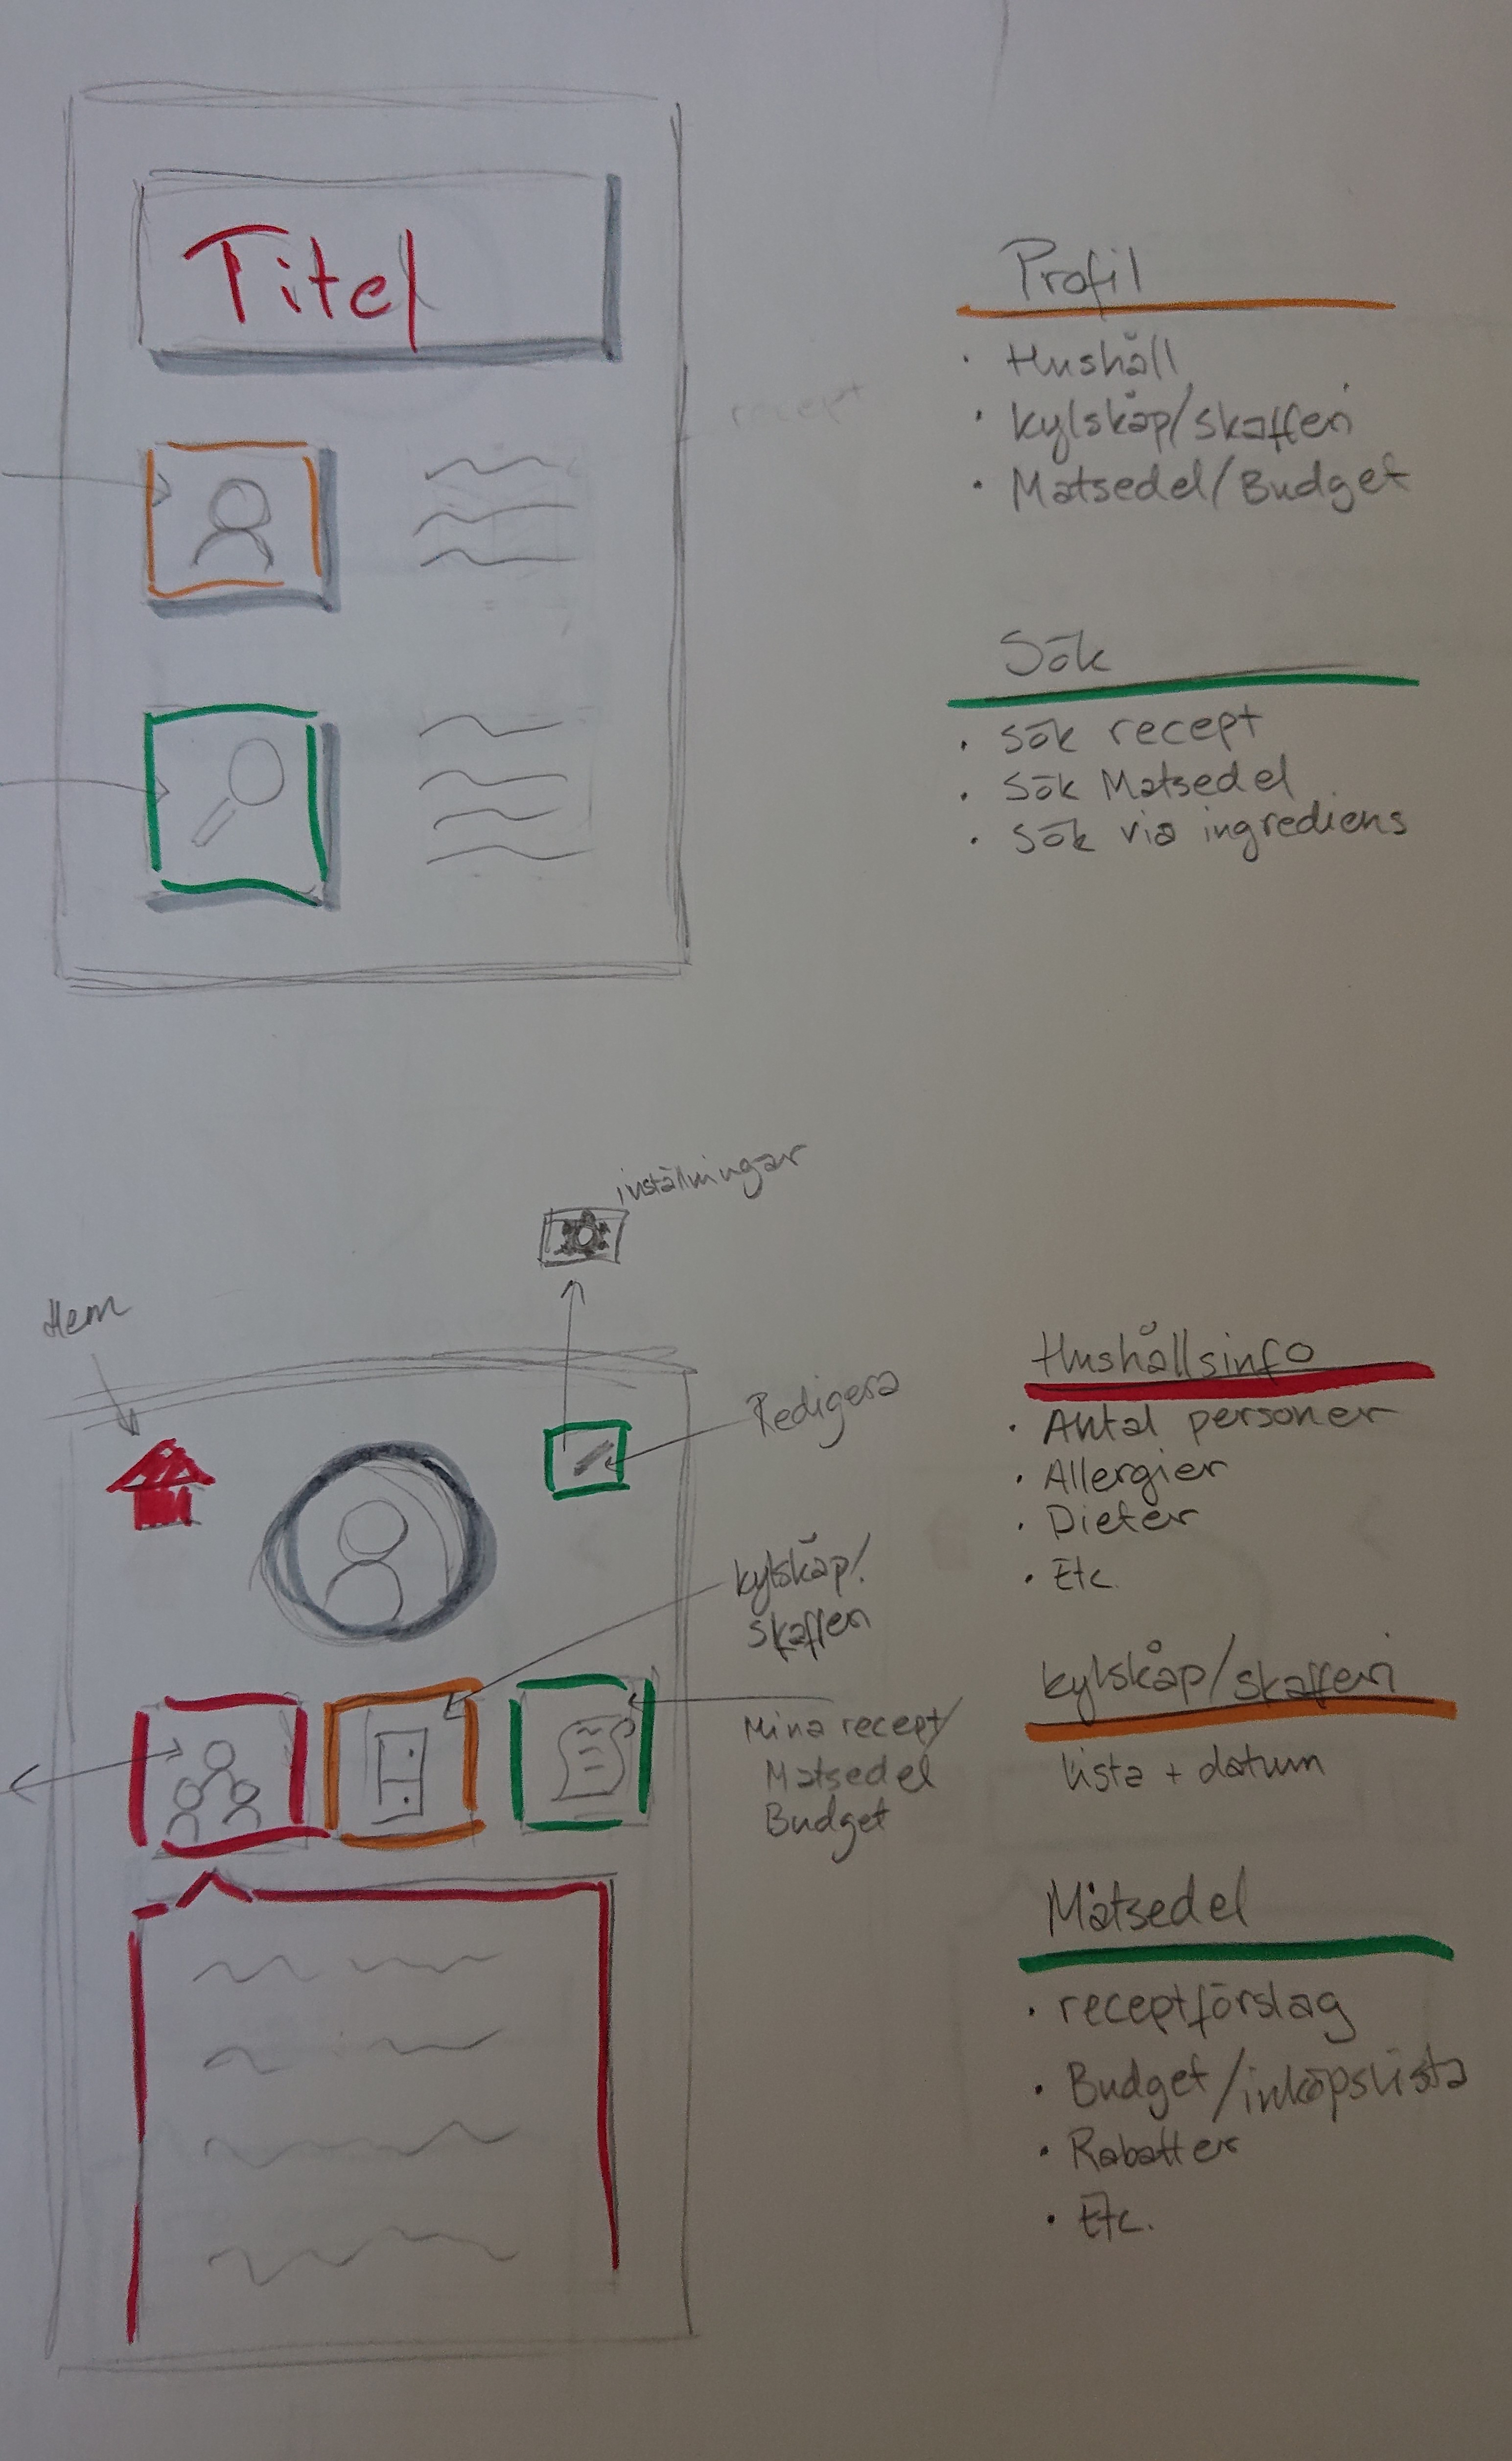 Titel
recept
Profil
· Hushåll
· kylskåp/skafferi
· Matsedel/Budget
Sök
· Sök recept
· Sök Matsedel
· Sök via ingrediens
inställningar
Hem
Redigera
kylskåp/
skafferi
Mina recept/
Matsedel
Budget
Hushållsinfo
· Antal personer
· Allergier
· Dieter
· Etc.
kylskåp/skafferi
lista + datum
Matsedel
· receptförslag
· Budget/inköpslista
· Rabatter
· Etc.